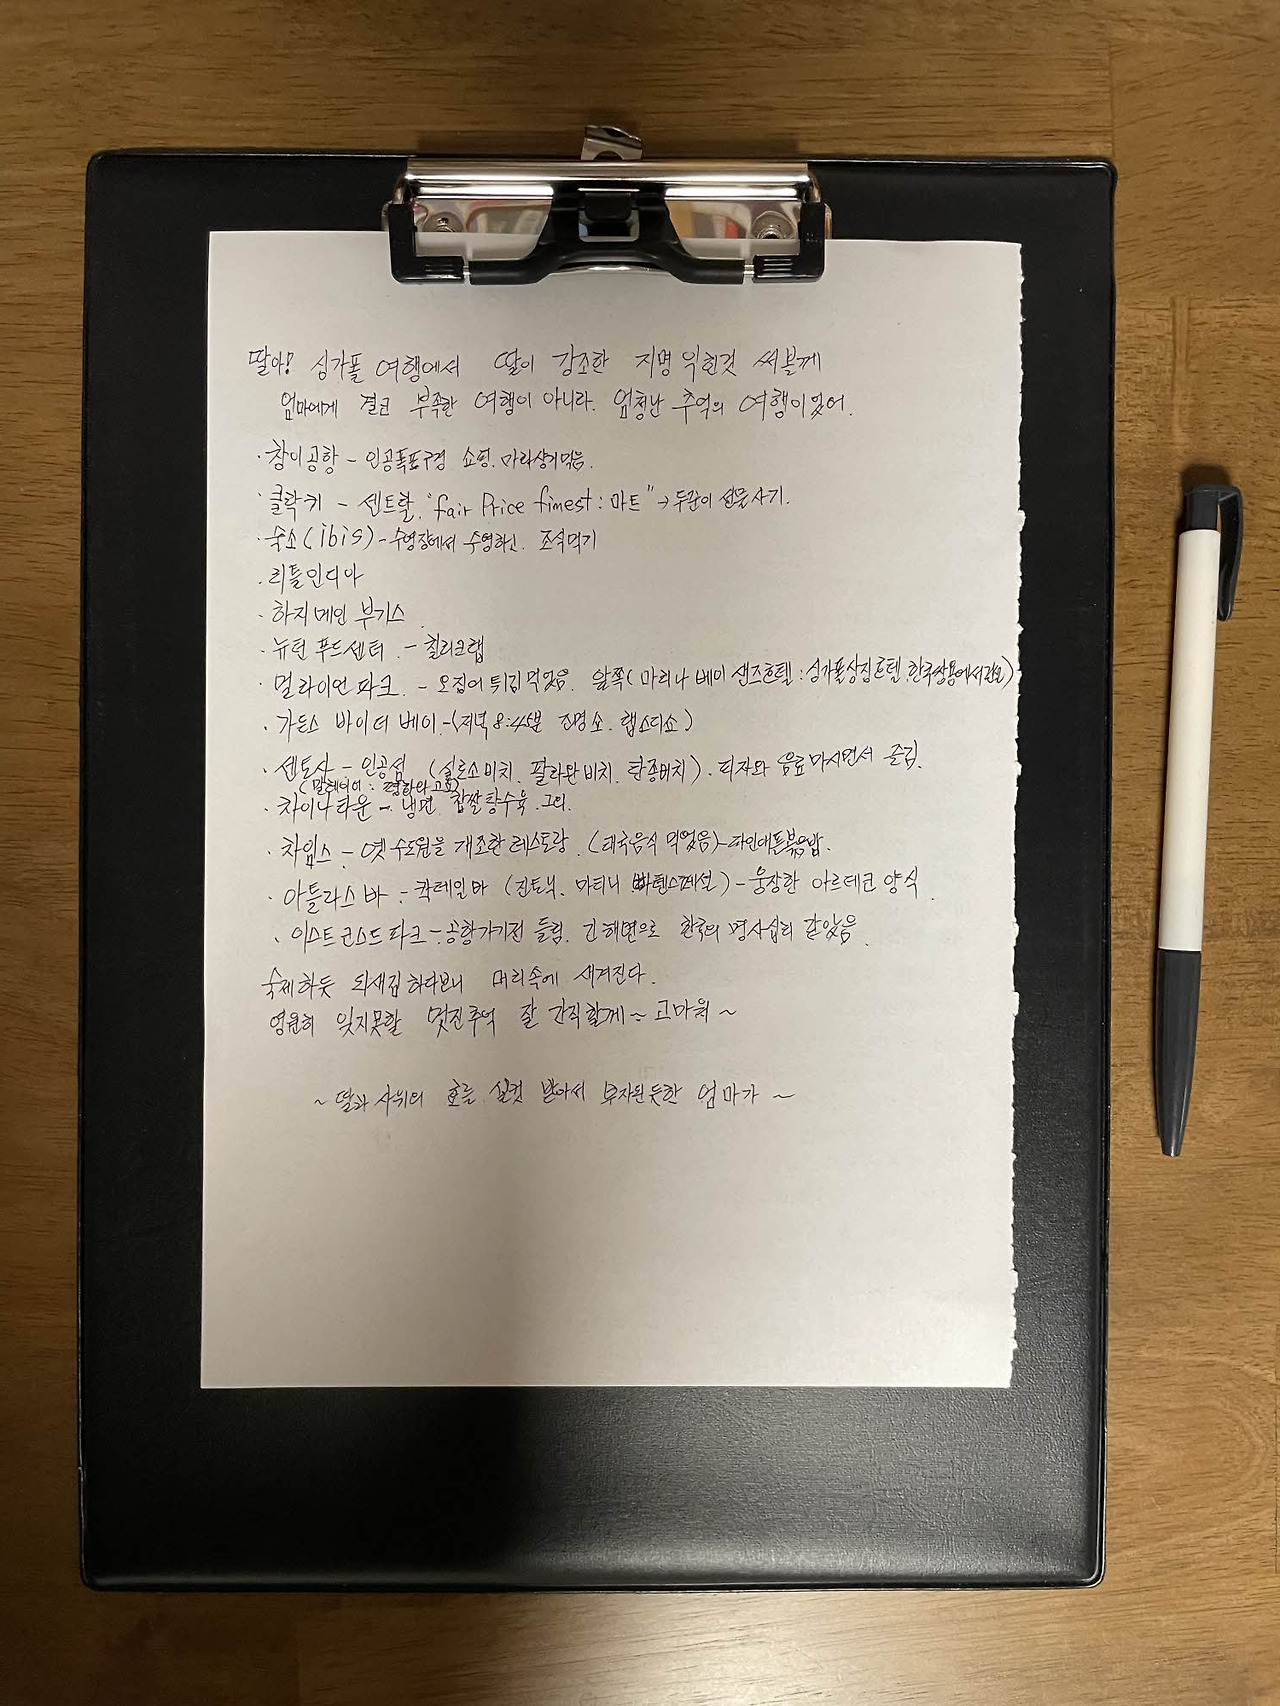 딸아! 싱가폴 여행에서 딸이 강조한 지명 익힌것 써볼께
엄마에게 결코 부족한 여행이 아니라. 엄청난 추억의 여행이었어.
· 창이공항 - 인공폭포구경 쇼핑. 마라샹궈먹음.
· 클락키 - 센트럴. "fair Price finest : 마트" → 두군이 선물사기.
· 숙소(ibis) - 수영장에서 수영하신. 조식먹기
· 리틀인디아
· 하지메인 부기스.
· 뉴턴 푸드센터. - 칠리크랩
· 멀라이언 파크. - 오징어 튀김 먹었음. 앞쪽(마리나 베이 샌즈호텔 : 싱가폴상징호텔. 한국쌍용에서)
· 가든스 바이더 베이. - (저녁 8:45분 조명쇼. 랩소디쇼)
· 센토사 - 인공섬 (실로소비치. 팔라완비치. 탄종비치). 피자와 음료마시면서 즐김.
(말레이어 : 평화와 고요)
· 차이나타운 - 냉면. 찹쌀탕수육.
· 차임스 - 옛 수도원을 개조한 레스토랑. (태국음식 먹었음) - 파인애플볶음밥.
· 아틀라스 바 - 칵테일바 (진토닉. 마티니) - 웅장한 아르데코 양식.
· 이스트코스트 파크 - 공항가기전 들림. 긴 해변으로 한국의 명사십리 같았음.
숙제하듯 되새김 하다보니 머리속에 새겨진다.
영원히 잊지못할 멋진추억 잘 간직할게~ 고마워~
~ 딸과 사위의 효를 실컷 받아서 부자된듯한 엄마가 ~